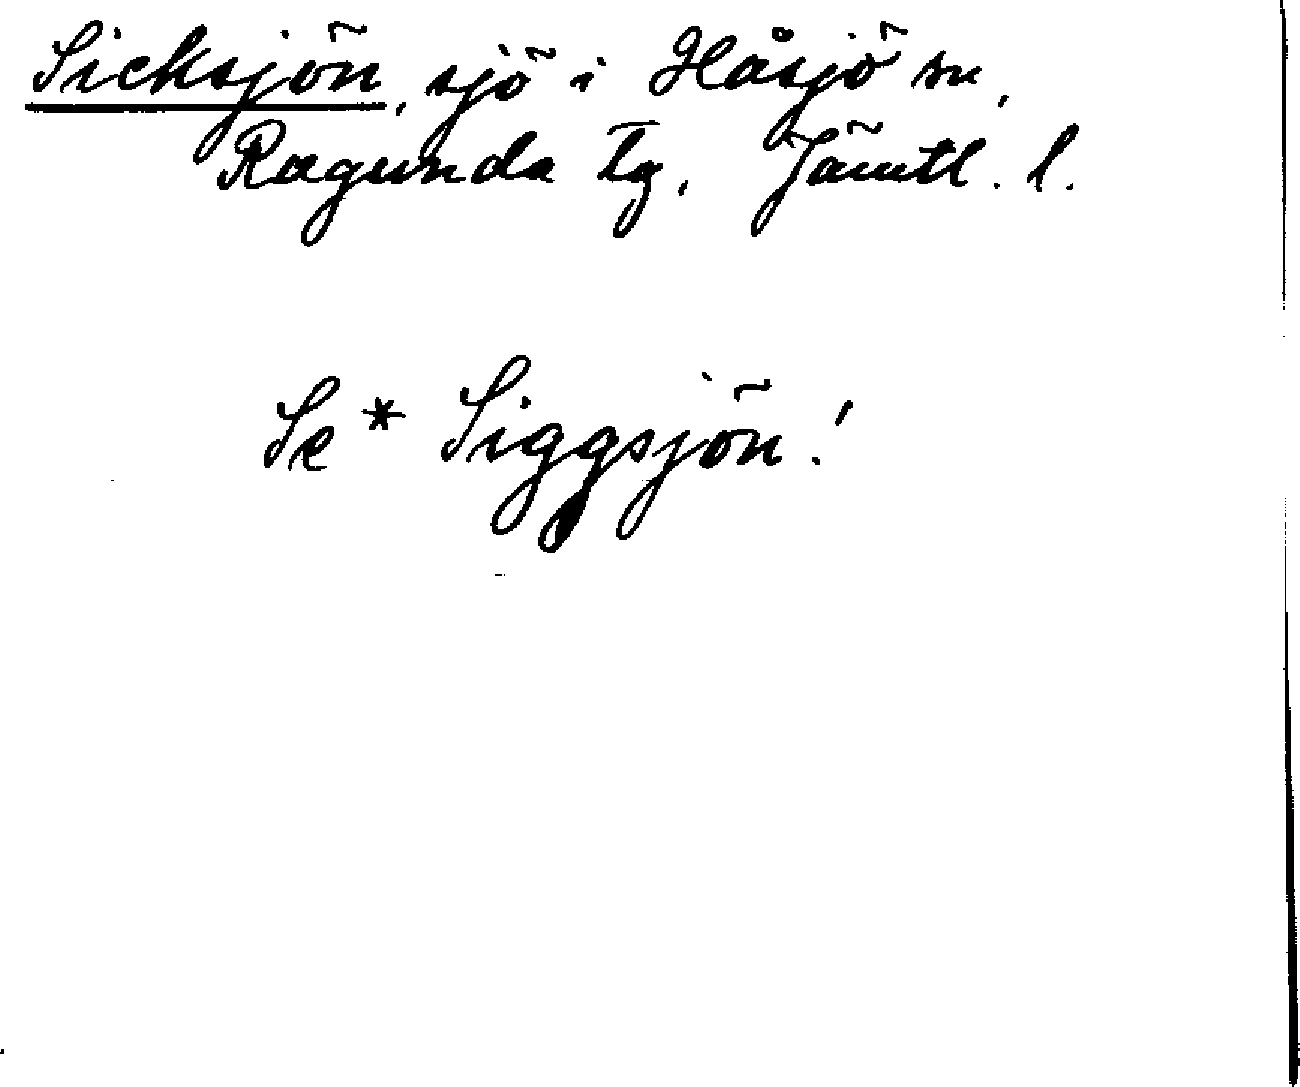 Sicksjön, sjö i Håsjö sn,
Ragunda tg, Jämtl. l.
Se * Siggsjön!